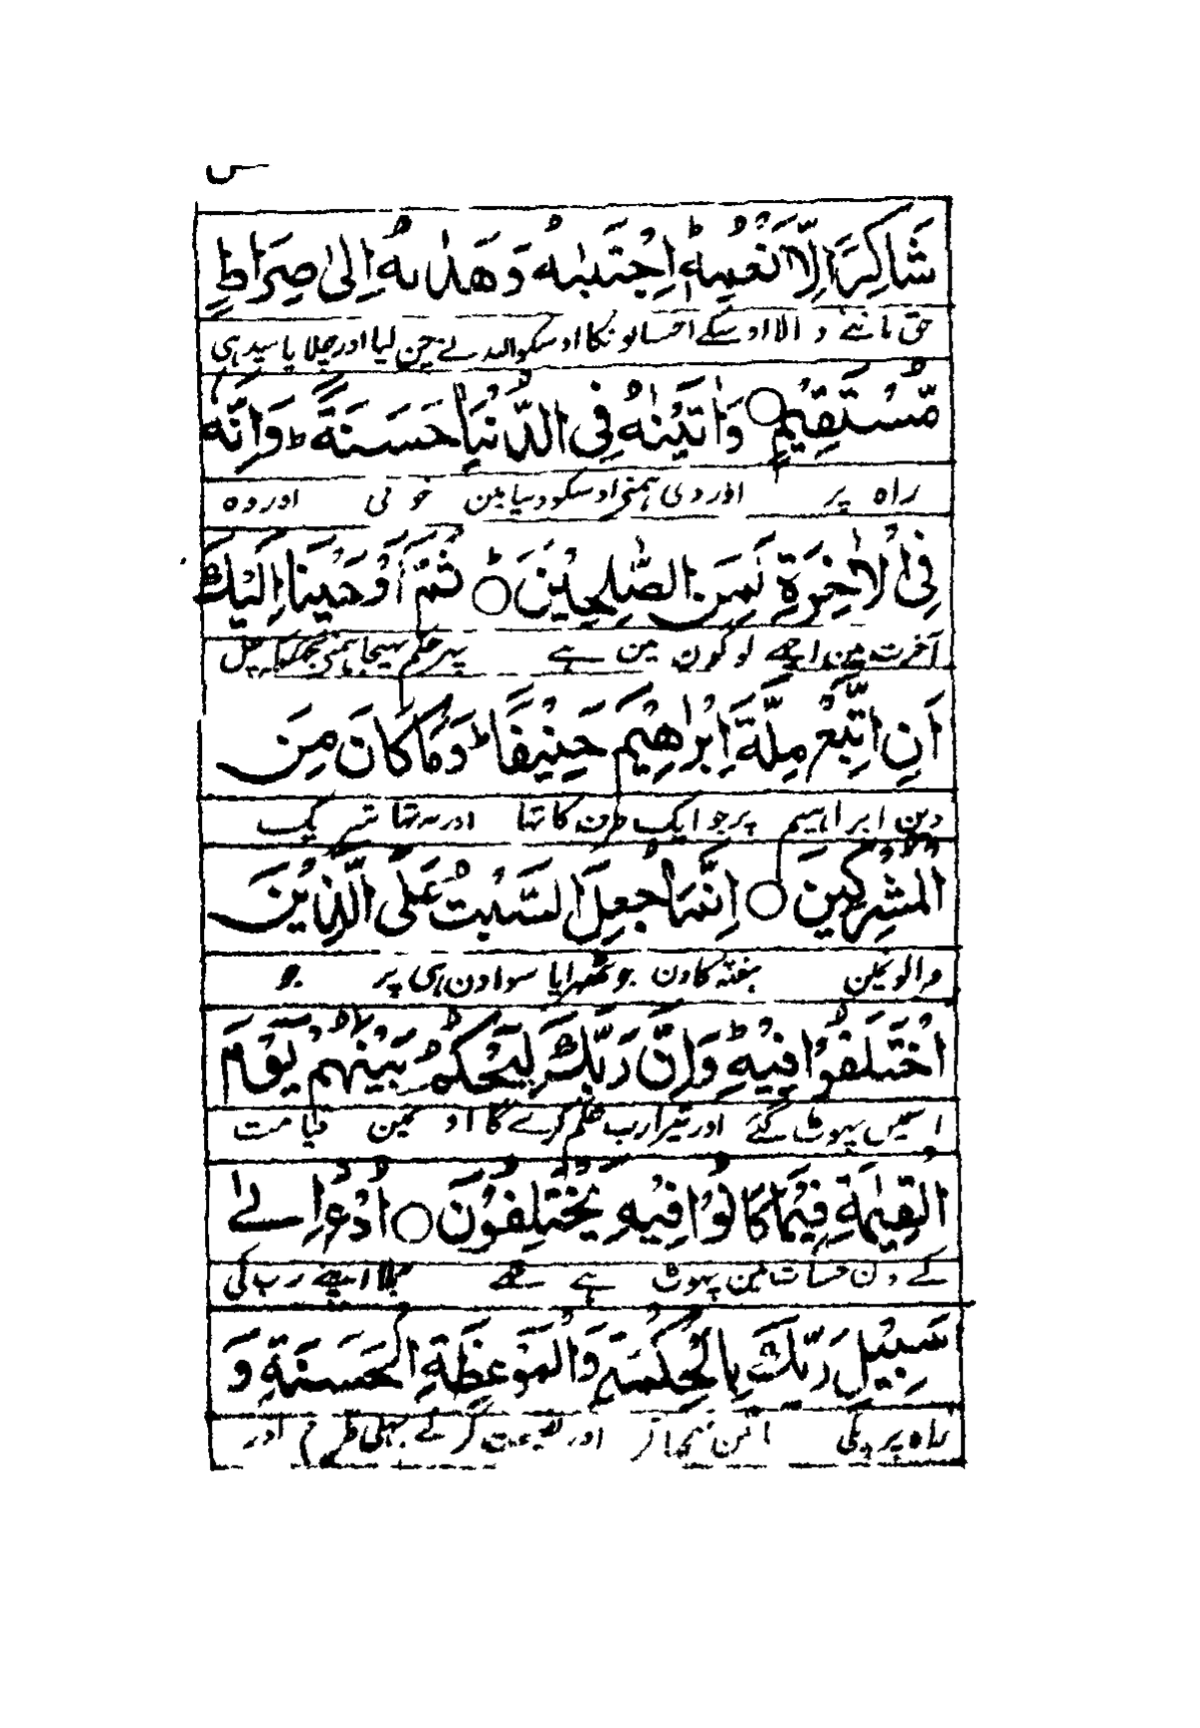 شَاكِرًا لِّاَنْعُمِهٖ ؕ اِجْتَبٰىهُ وَهَدٰىهُ اِلٰى صِرَاطٍ
حق ماننے والا اوسکے احسانونکا اوسکو اللہ نے چن لیا اور چلایا سیدہی
مُّسْتَقِيْمٍ ○ وَاٰتَيْنٰهُ فِى الدُّنْيَا حَسَنَةً ؕ وَاِنَّهٗ
راہ پر اور دی ہمنے اوسکو دنیا مین خوبی اور وہ
فِى الْاٰخِرَةِ لَمِنَ الصّٰلِحِيْنَ ؕ ○ ثُمَّ اَوْحَيْنَا اِلَيْكَ
آخرت مین اچھے لوگون مین ہے پہر حکم بہیجا ہمنے تجھکو کہ چل
اَنِ اتَّبِعْ مِلَّةَ اِبْرٰهِيْمَ حَنِيْفًا ؕ وَمَا كَانَ مِنَ
دین ابراہیم پر جو ایک طرف کا تہا اور نہ تہا شریک
الْمُشْرِكِيْنَ ○ اِنَّمَا جُعِلَ السَّبْتُ عَلَى الَّذِيْنَ
والونمین ہفتہ کا دن جو ٹھہرایا سو اونہی پر جو
اخْتَلَفُوْا فِيْهِ ؕ وَاِنَّ رَبَّكَ لَيَحْكُمُ بَيْنَهُمْ يَوْمَ
اسمیں پہوٹ گئے اور تیرا رب حکم کرے گا اونمین قیامت
الْقِيٰمَةِ فِيْمَا كَانُوْا فِيْهِ يَخْتَلِفُوْنَ ○ اُدْعُ اِلٰى
کے دن جس بات مین پہوٹ رہے تھے بلا اپنے رب کی
سَبِيْلِ رَبِّكَ بِالْحِكْمَةِ وَالْمَوْعِظَةِ الْحَسَنَةِ وَ
راہ پر پکی باتین سمجھا کر اور نصیحت کر کے بہلی طرح اور